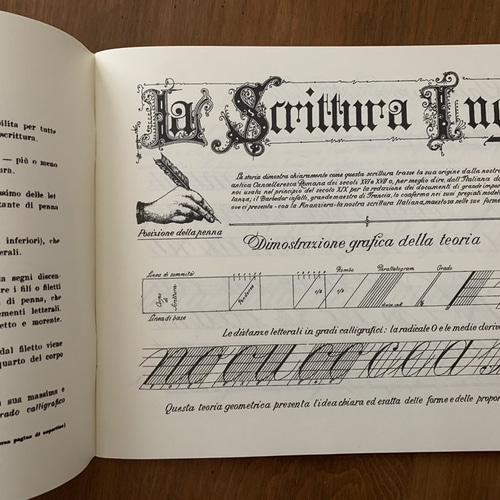 bilita per tutte
scrittura.
— più o meno
ura.
ssimo delle let
tante di penna
inferiori), che
erali.
in segni discen-
tre i fili o filetti
di penna, che
ementi letterali.
etto e morente.
dal filetto viene
quarto del corpo
sua massima e
grado calligrafico
La Scrittura Ing
La storia dimostra chiaramente come questa scrittura trasse la sua origine dalla nostra
antica Cancelleresca Romana dei secoli XVI e XVII o, per meglio dire, dall'Italiana de
noi usata nel principio del secolo XIX per la redazione dei documenti di grande impor
tanza; il Barbedor infatti, grande maestro di Francia, lo conferma nei suoi pregiati model
ove ci presenta - con la Financiera - la nostra scrittura Italiana, maestosa nelle sue forme
Posizione della penna
Dimostrazione grafica della teoria
Linea di sommità
Rombo
Parallelogram
Grado
Corpo di scrittura
Pendenza
1/2
1/2
Linea di base
Le distanze letterali in gradi calligrafici: la radicale O e le medie deriva
Questa teoria geometrica presenta l'idea chiara ed esatta delle forme e delle propor